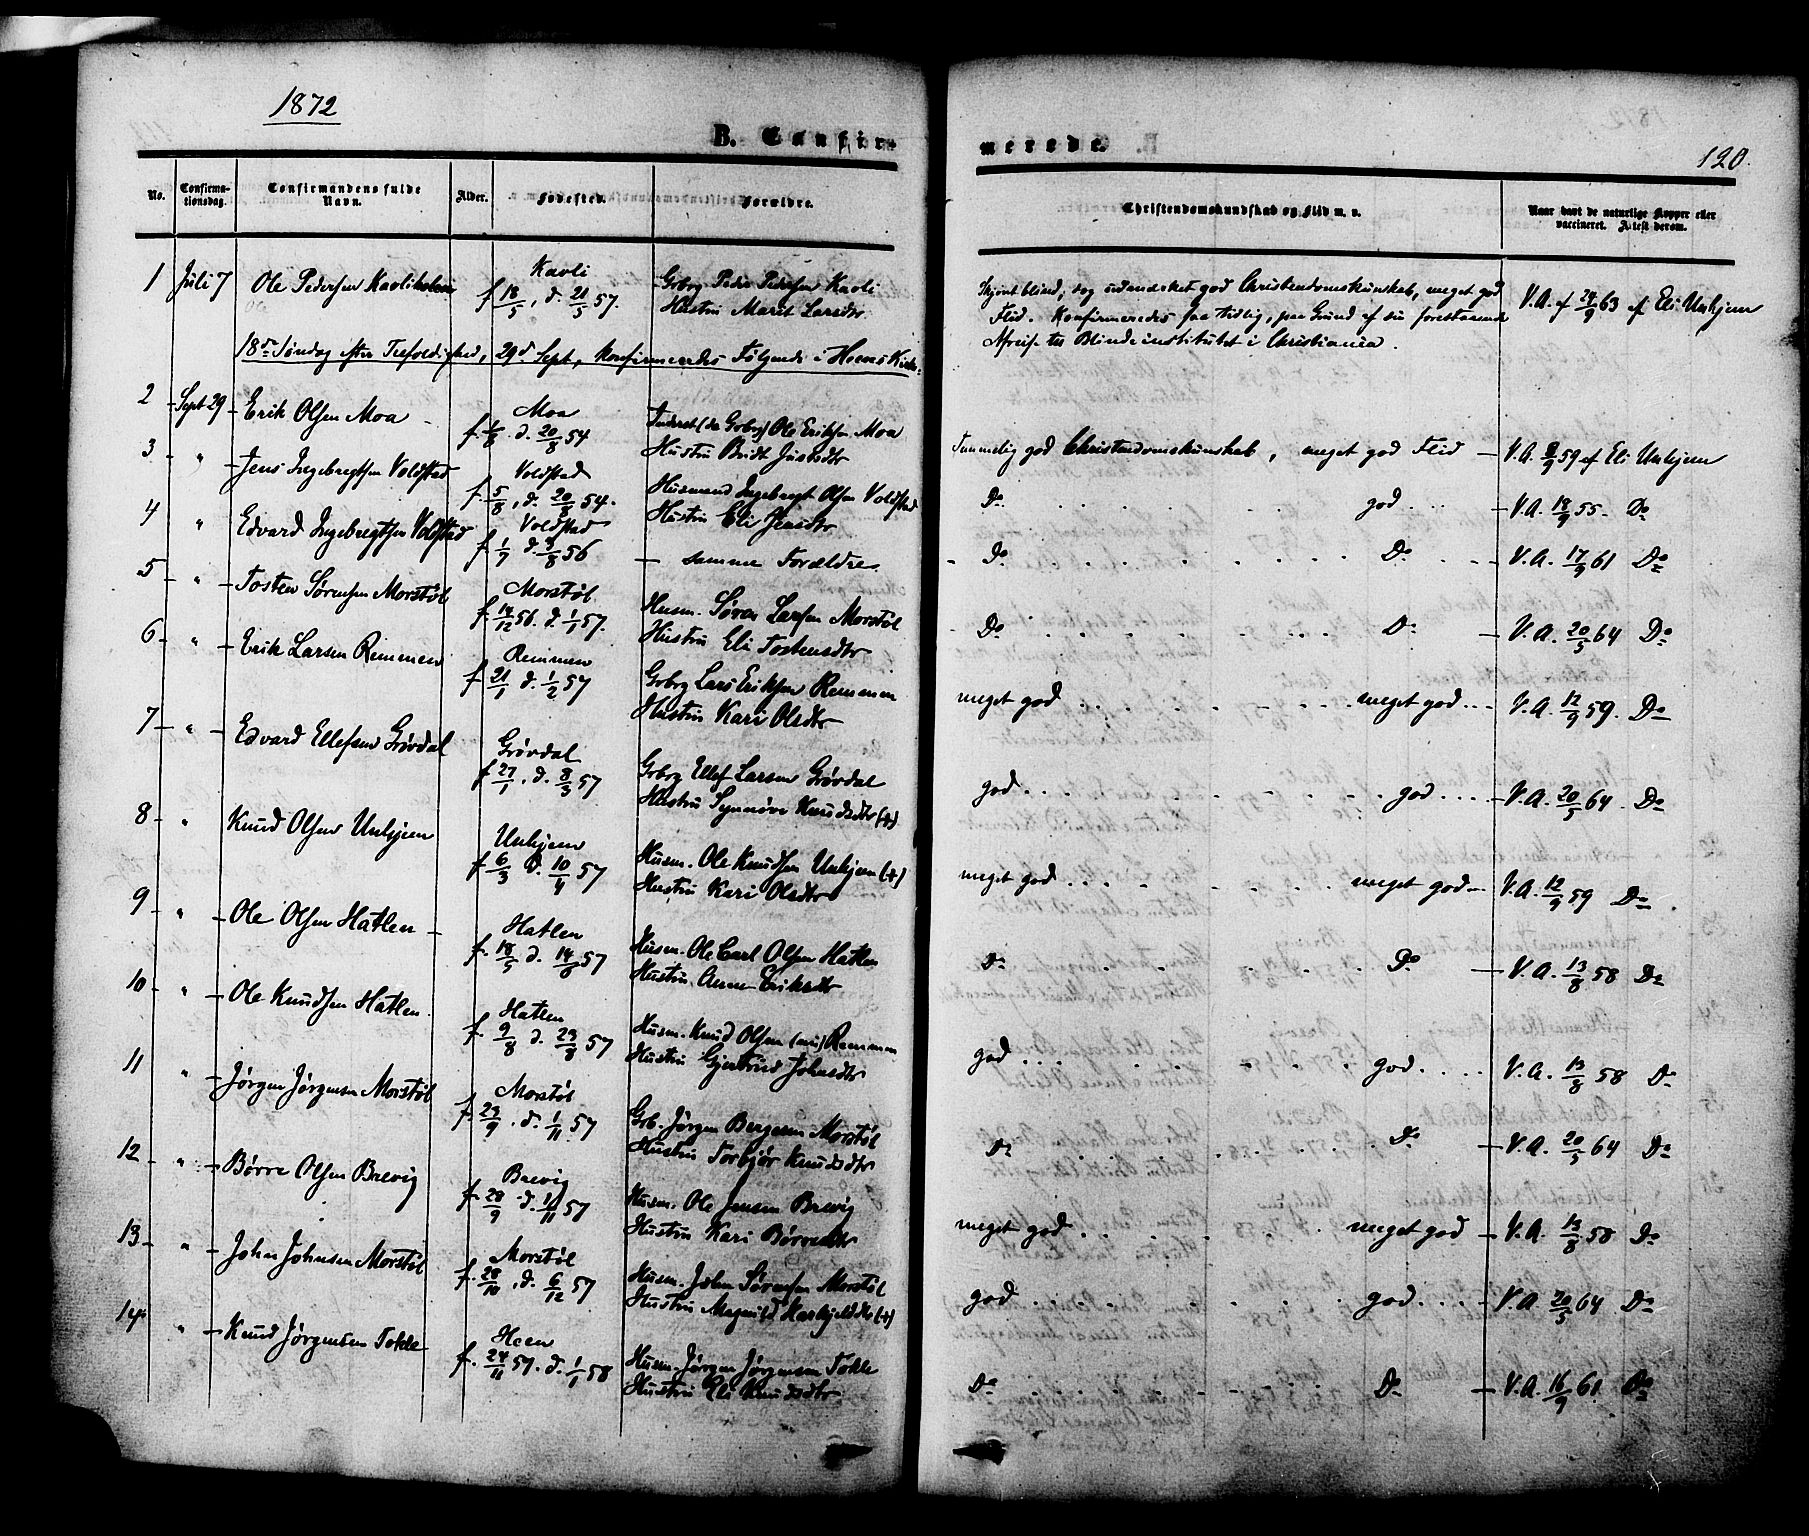 1872
B. Confir-
merede.
120.
No.
Confirma-
tionsdag.
Confirmandens fulde
Navn.
Alder.
Fødested.
Forældre.
Christendomskundskab og Flid m. v.
Naar havt de naturlige Kopper eller
vaccineret. Attest derom.
1 Juli 7 Ole Pedersen Kavliholen
Kavli
f 18/5, d. 21/5 57.
Gbrg Peder Pedersen Kavli
Hustru Marit Larsdtr.
Skjønt blind, dog udmærket god Christendomskunskab, meget god
Flid. Konfirmeredes saa tidlig, paa Grund af sin forestaaende
Afreise til Blindeinstitutet i Christiania.
V.A. f 24/9 63 af Eli Unhjem
18de Søndag efter Trefoldighed, 29d Sept, Konfirmeredes Følgende i Heens Kirke:
2 Sept 29 Erik Olsen Moa
Moa
f. 1/8 d. 20/8 54
Inderst (da Gbrg) Ole Eriksen Moa
Hustru Bridt Justsdtr
Temmelig god Christendomskunskab, meget god Flid
V.A. 8/9 59 af Eli Unhjem
3 " Jens Ingebregtsen Voldstad
Voldstad
f. 5/8, d. 20/8 54.
Husmand Ingebregt Olsen Voldstad
Hustru Eli Jensdtr
Do . . . god . . .
V.A. 18/9 55. Do
4 " Edvard Ingebregtsen Voldstad
Voldstad
f 1/7 d. 3/8 56
— samme Forældre
Do . . . Do
V.A. 17/9 61 Do
5 " Tosten Sørensen Morstøl
Morstøl
f. 14/12 56. d. 1/1 57.
Husm. Søren Larsen Morstøl
Hustru Eli Tostensdtr
Do . . . Do
V.A. 20/5 64 Do
6 " Erik Larsen Remmen
Remmen
f 21/1 d. 1/2 57
Gbrg Lars Eriksen Remmen
Hustru Kari Olsdtr
meget god . . . meget god . . .
V.A. 12/9 59. Do
7 " Edvard Ellefsen Grøvdal
Grøvdal
f 27/1, d. 8/3 57
Gbrg Ellef Larsen Grøvdal
Hustru Synnøve Knudsdtr (+)
god . . . god . . .
V.A. 20/5 64. Do
8 " Knud Olsen Unhjem
Unhjem
f 6/3 d. 10/4 57
Husm. Ole Knudsen Unhjem (+)
Hustru Kari Olsdtr
meget god . . . meget god
V.A. 12/9 59 Do
9 " Ole Olsen Hatlen
Hatlen
f. 18/5 d. 14/6 57
Husm. Ole Carl Olsen Hatlen
Hustru Anne Eriksdtr
Do . . . Do
V.A. 13/8 58 Do
10 " Ole Knudsen Hatlen.
Hatlen
f. 9/8 d. 23/8 57
Husm. Knud Olsen (nu) Remmen
Hustru Gjertrud Johnsdtr
god . . . god . . .
V.A. 13/8 58 Do
11 " Jørgen Jørgensen Morstøl
Morstøl
f. 23/9. d. 1/11 57
Grb. Jørgen Bergesen Morstøl
Hustru Torbjør Knudsdtr
Do . . . Do
V.A. 20/5 64 Do
12 " Børre Olsen Brevig
Brevig
f. 28/9 d. 1/11 57
Husm. Ole Jensen Brevig
Hustru Kari Børresdtr
meget god . . . meget god
V.A. 13/8 58 Do
13 " John Johnsen Morstøl
Morstøl
f. 28/10, d. 6/12 57
Husm. John Sørensen Morstøl
Hustru Magnild (+)
god . . . god . . .
V.A 20/5 64 Do
14 " Knud Jørgensen Tokle
Heen
f. 24/11 57. d. 1/1 58
Husm. Jørgen Jørgensen Tokle
Hustru Eli Knudsdtr
Do . . . Do
V.A. 16/9 61 Do